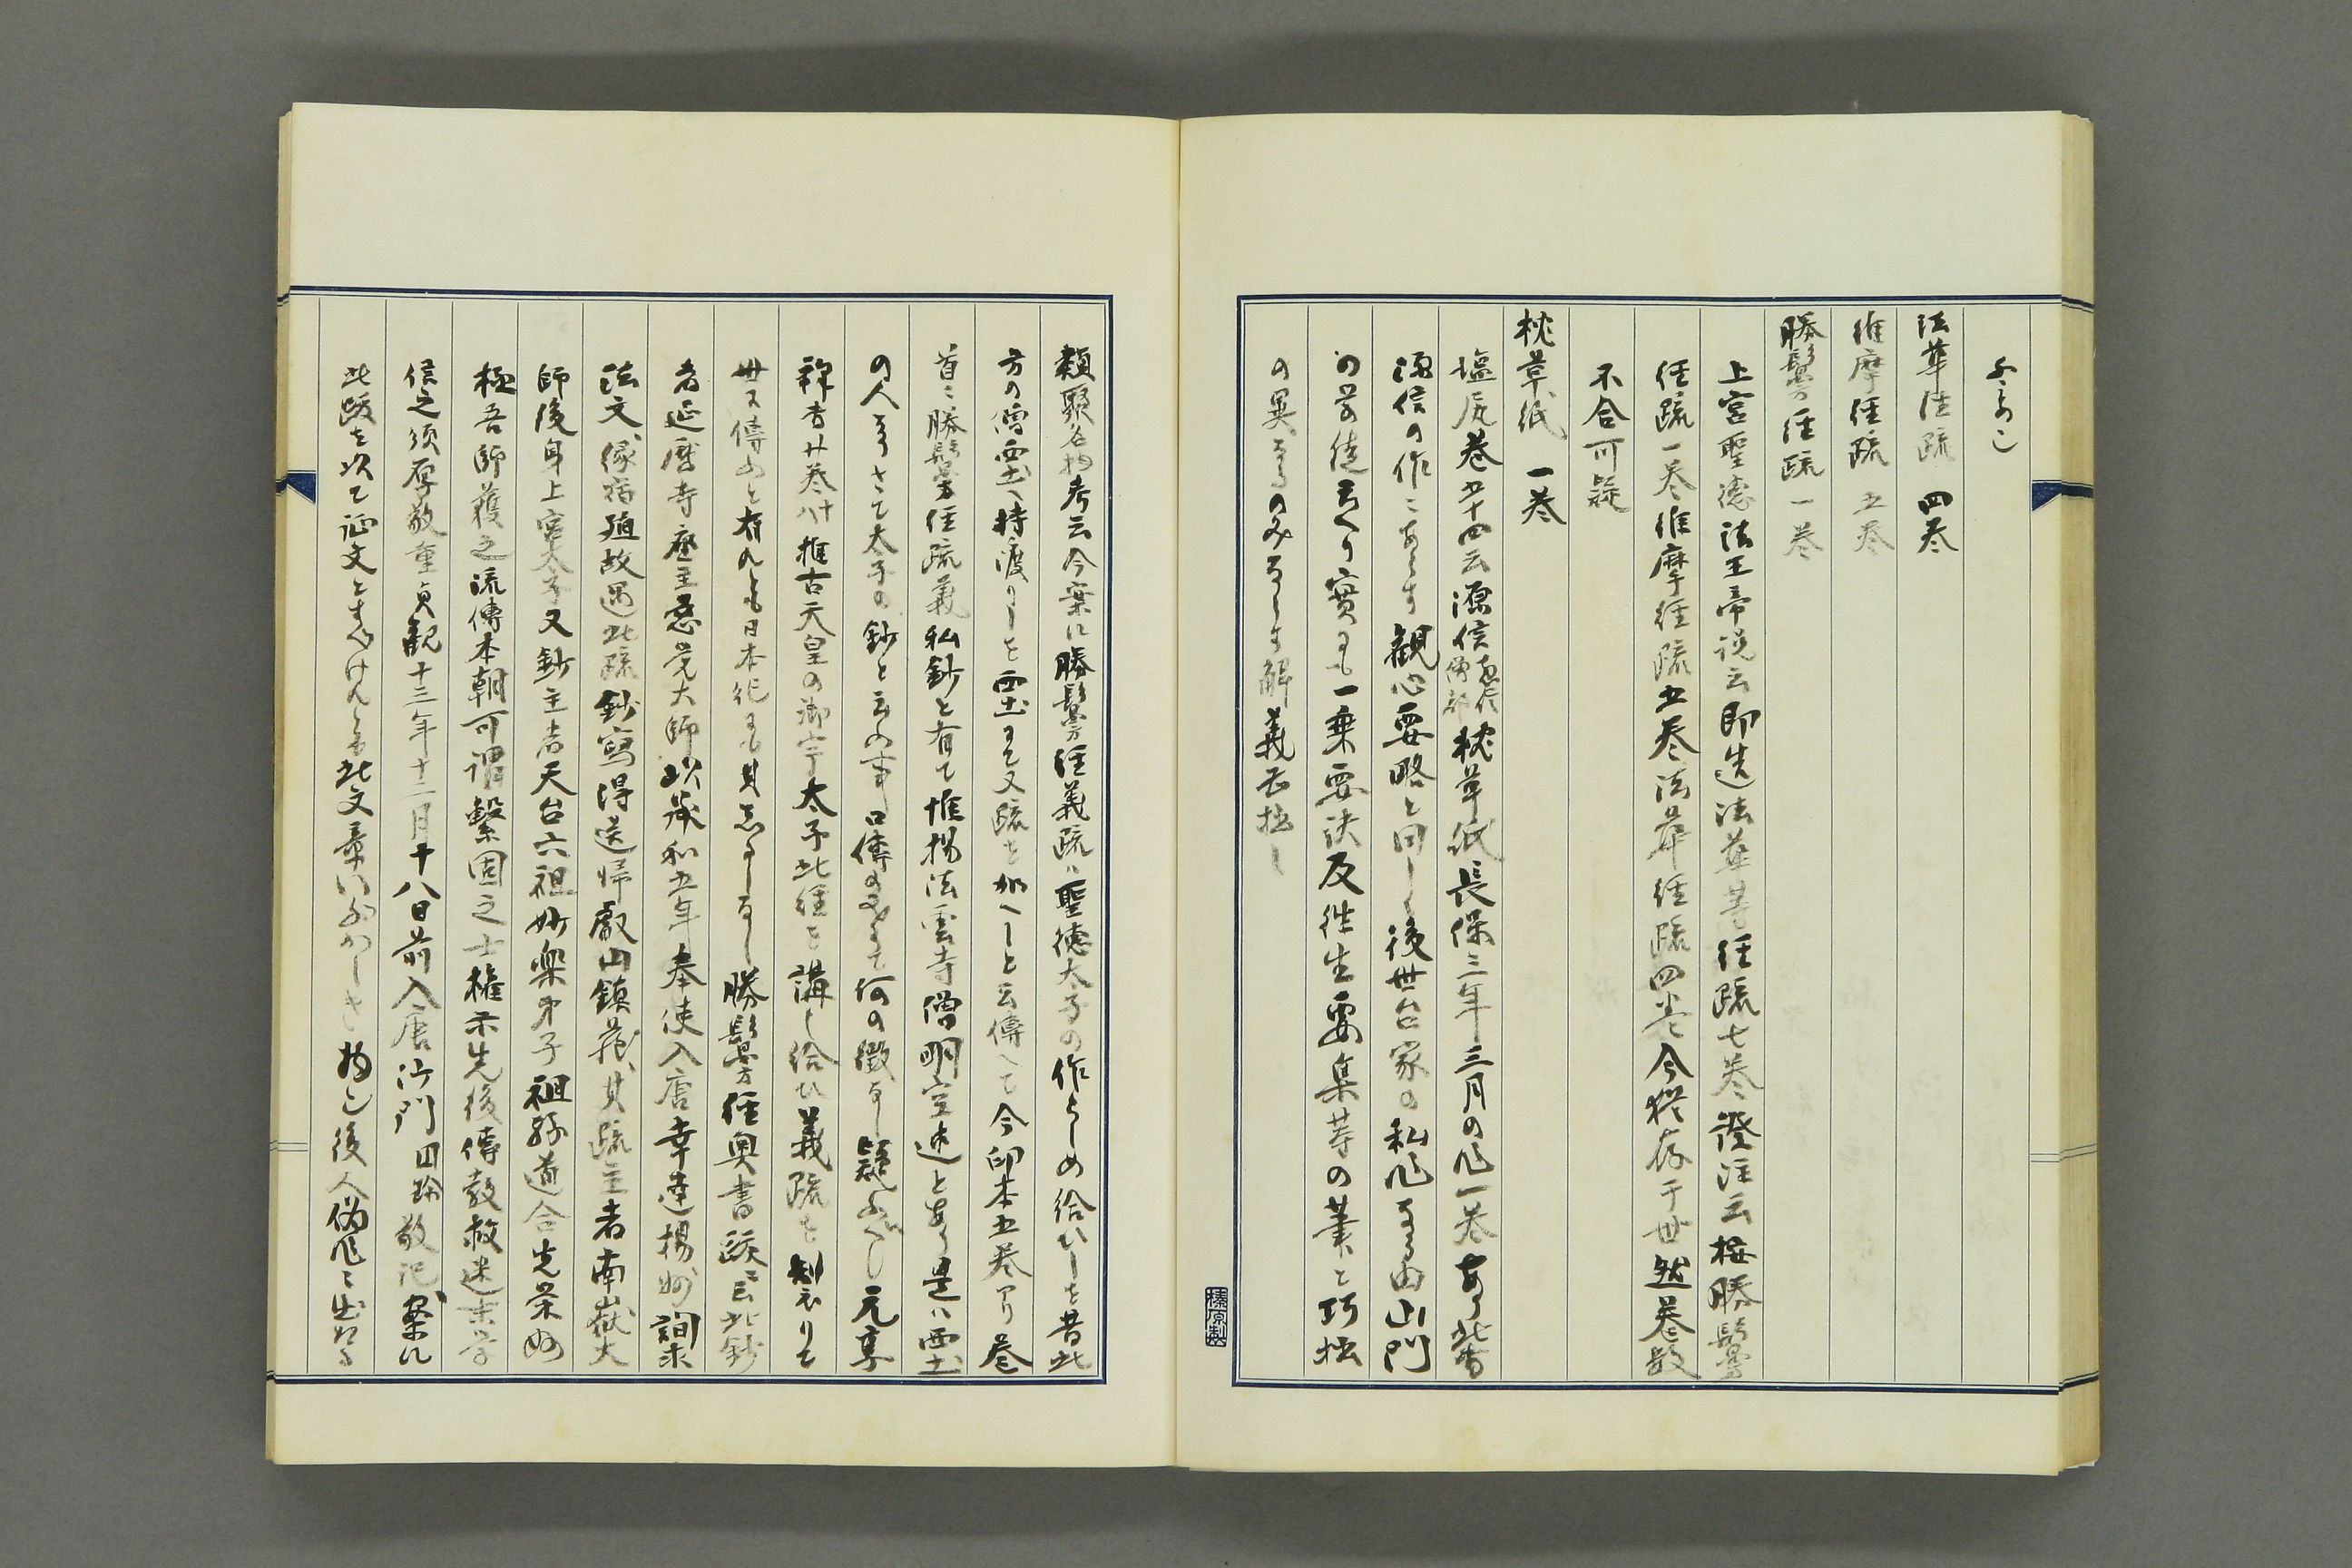 法華経疏　四巻
維摩経疏　五巻
勝鬘経疏　一巻
上宮聖徳法王帝説云即造法華等経疏七巻證注云按勝鬘
経疏一巻維摩経疏五巻法華経疏四巻今猶存于世然巻数
不合可疑
枕草紙　一巻
塩尻巻五十四云源信恵心僧都枕草紙長保三年三月の作一巻あり此書
源信の作にあらす観心要略と同しく後世台家の私作なる由山門
の学徒言へり実にも一乗要決及往生要集等の筆と巧拙
の異なるのみならす解義甚拙し
榛原製
類聚名物考云今案に勝鬘経義疏は聖徳太子の作らしめ給ひしを昔此
方の僧霊土へ持渡りしを霊土にて又疏を加へしと云伝へて今印本五巻あり巻
首に勝鬘経疏義私鈔と有て惟揚法雲寺僧明空述とあり是は霊土
の人なりさて太子の鈔と云の事口伝のみにて何の徴なし疑ふへし元亨
釈書廿巻八十推古天皇の御宇太子此経を講し給ひ義疏を製りて
世に伝ふと有れとも日本紀にも其志るしなし勝鬘経奥書跋に云此鈔
者延暦寺座主慈覚大師以承和五年奉使入唐幸達揚州詢求
法文縁宿殖故遇此疏鈔写得送帰叡山鎮蔵其疏主者南嶽大
師後身上宮太子又鈔主者天台六祖妙楽弟子祖孫道合先栄好
極吾師獲之流伝本朝可謂繋固之士権示先後伝教救迷末学
信之須厚敬重貞観十三年十二月十八日前入唐沙門円珍敬記案に
此跋を以て証文とすへけれとも此文章いふかしき物也後人偽作に出たる